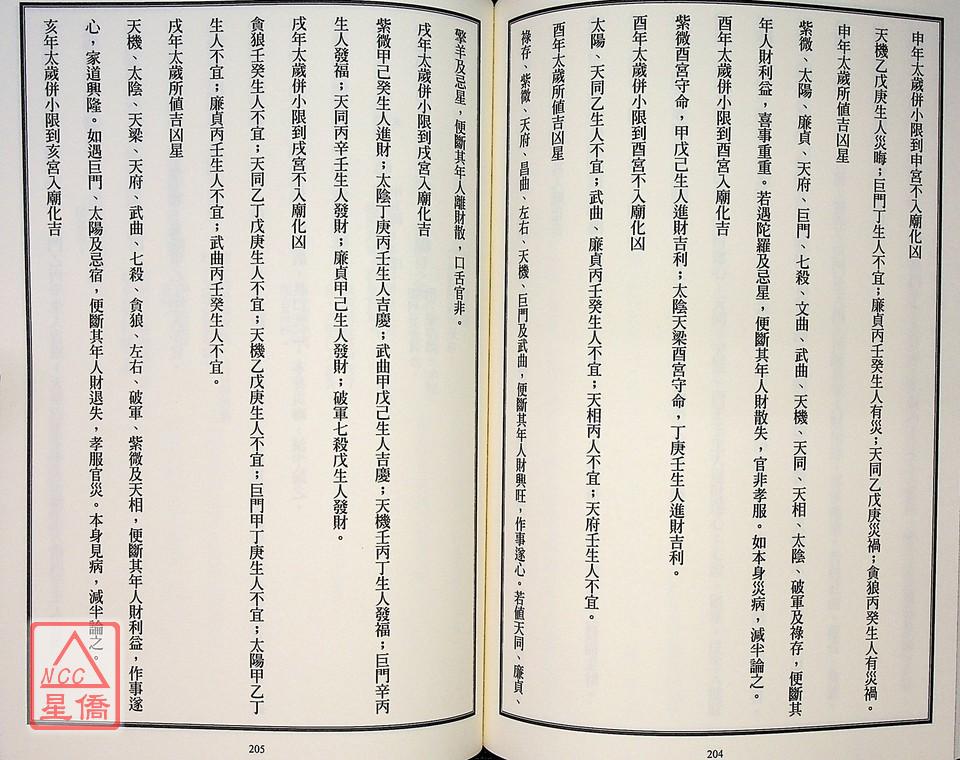 申年太歲併小限到申宮不入廟化凶
天機乙戊庚生人災晦；巨門丁生人不宜；廉貞丙壬癸生人有災；天同乙戊庚災禍；貪狼丙癸生人有災禍。
申年太歲所值吉凶星
紫微、太陽、廉貞、天府、巨門、七殺、文曲、武曲、天機、天同、天相、太陰、破軍及祿存，便斷其
年人財利益，喜事重重。若遇陀羅及忌星，便斷其年人財散失，官非孝服。如本身災病，減半論之。
酉年太歲併小限到酉宮入廟化吉
紫微酉宮守命，甲戊己生人進財吉利；太陰天梁酉宮守命，丁庚壬生人進財吉利。
酉年太歲併小限到酉宮不入廟化凶
太陽、天同乙生人不宜；武曲、廉貞丙壬癸生人不宜；天相丙人不宜；天府壬生人不宜。
酉年太歲所值吉凶星
祿存、紫微、天府、昌曲、左右、天機、巨門及武曲，便斷其年人財興旺，作事遂心。若值天同、廉貞、
204
擎羊及忌星，便斷其年人離財散，口舌官非。
戌年太歲併小限到戌宮入廟化吉
紫微甲己癸生人進財；太陰丁庚丙壬生人吉慶；武曲甲戊己生人吉慶；天機壬丙丁生人發福；巨門辛丙
生人發福；天同丙辛壬生人發財；廉貞甲己生人發財；破軍七殺戊生人發財。
戌年太歲併小限到戌宮不入廟化凶
貪狼壬癸生人不宜；天同乙丁戊庚生人不宜；天機乙戊庚生人不宜；巨門甲丁庚生人不宜；太陽甲乙丁
生人不宜；廉貞丙壬生人不宜；武曲丙壬癸生人不宜。
戌年太歲所值吉凶星
天機、太陰、天梁、天府、武曲、七殺、貪狼、左右、破軍、紫微及天相，便斷其年人財利益，作事遂
心，家道興隆。如遇巨門、太陽及忌宿，便斷其年人財退失，孝服官災。本身見病，減半論之。
亥年太歲併小限到亥宮入廟化吉
205
NCC
星僑